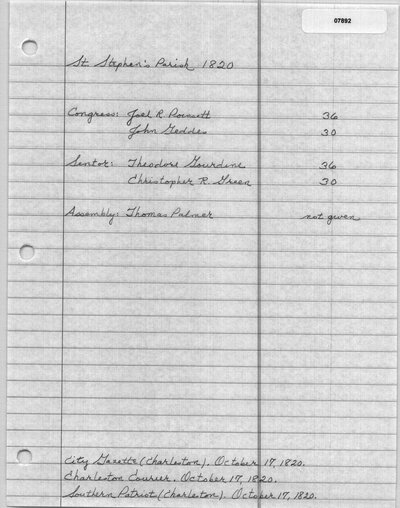 07892
St. Stephen's Parish 1820
Congress: Joel R. Poinsett 36
John Geddes 30
Senator: Theodore Gourdine 36
Christopher R. Green 30
Assembly: Thomas Palmer not given
City Gazette (Charleston). October 17, 1820.
Charleston Courier. October 17, 1820.
Southern Patriot (Charleston). October 17, 1820.